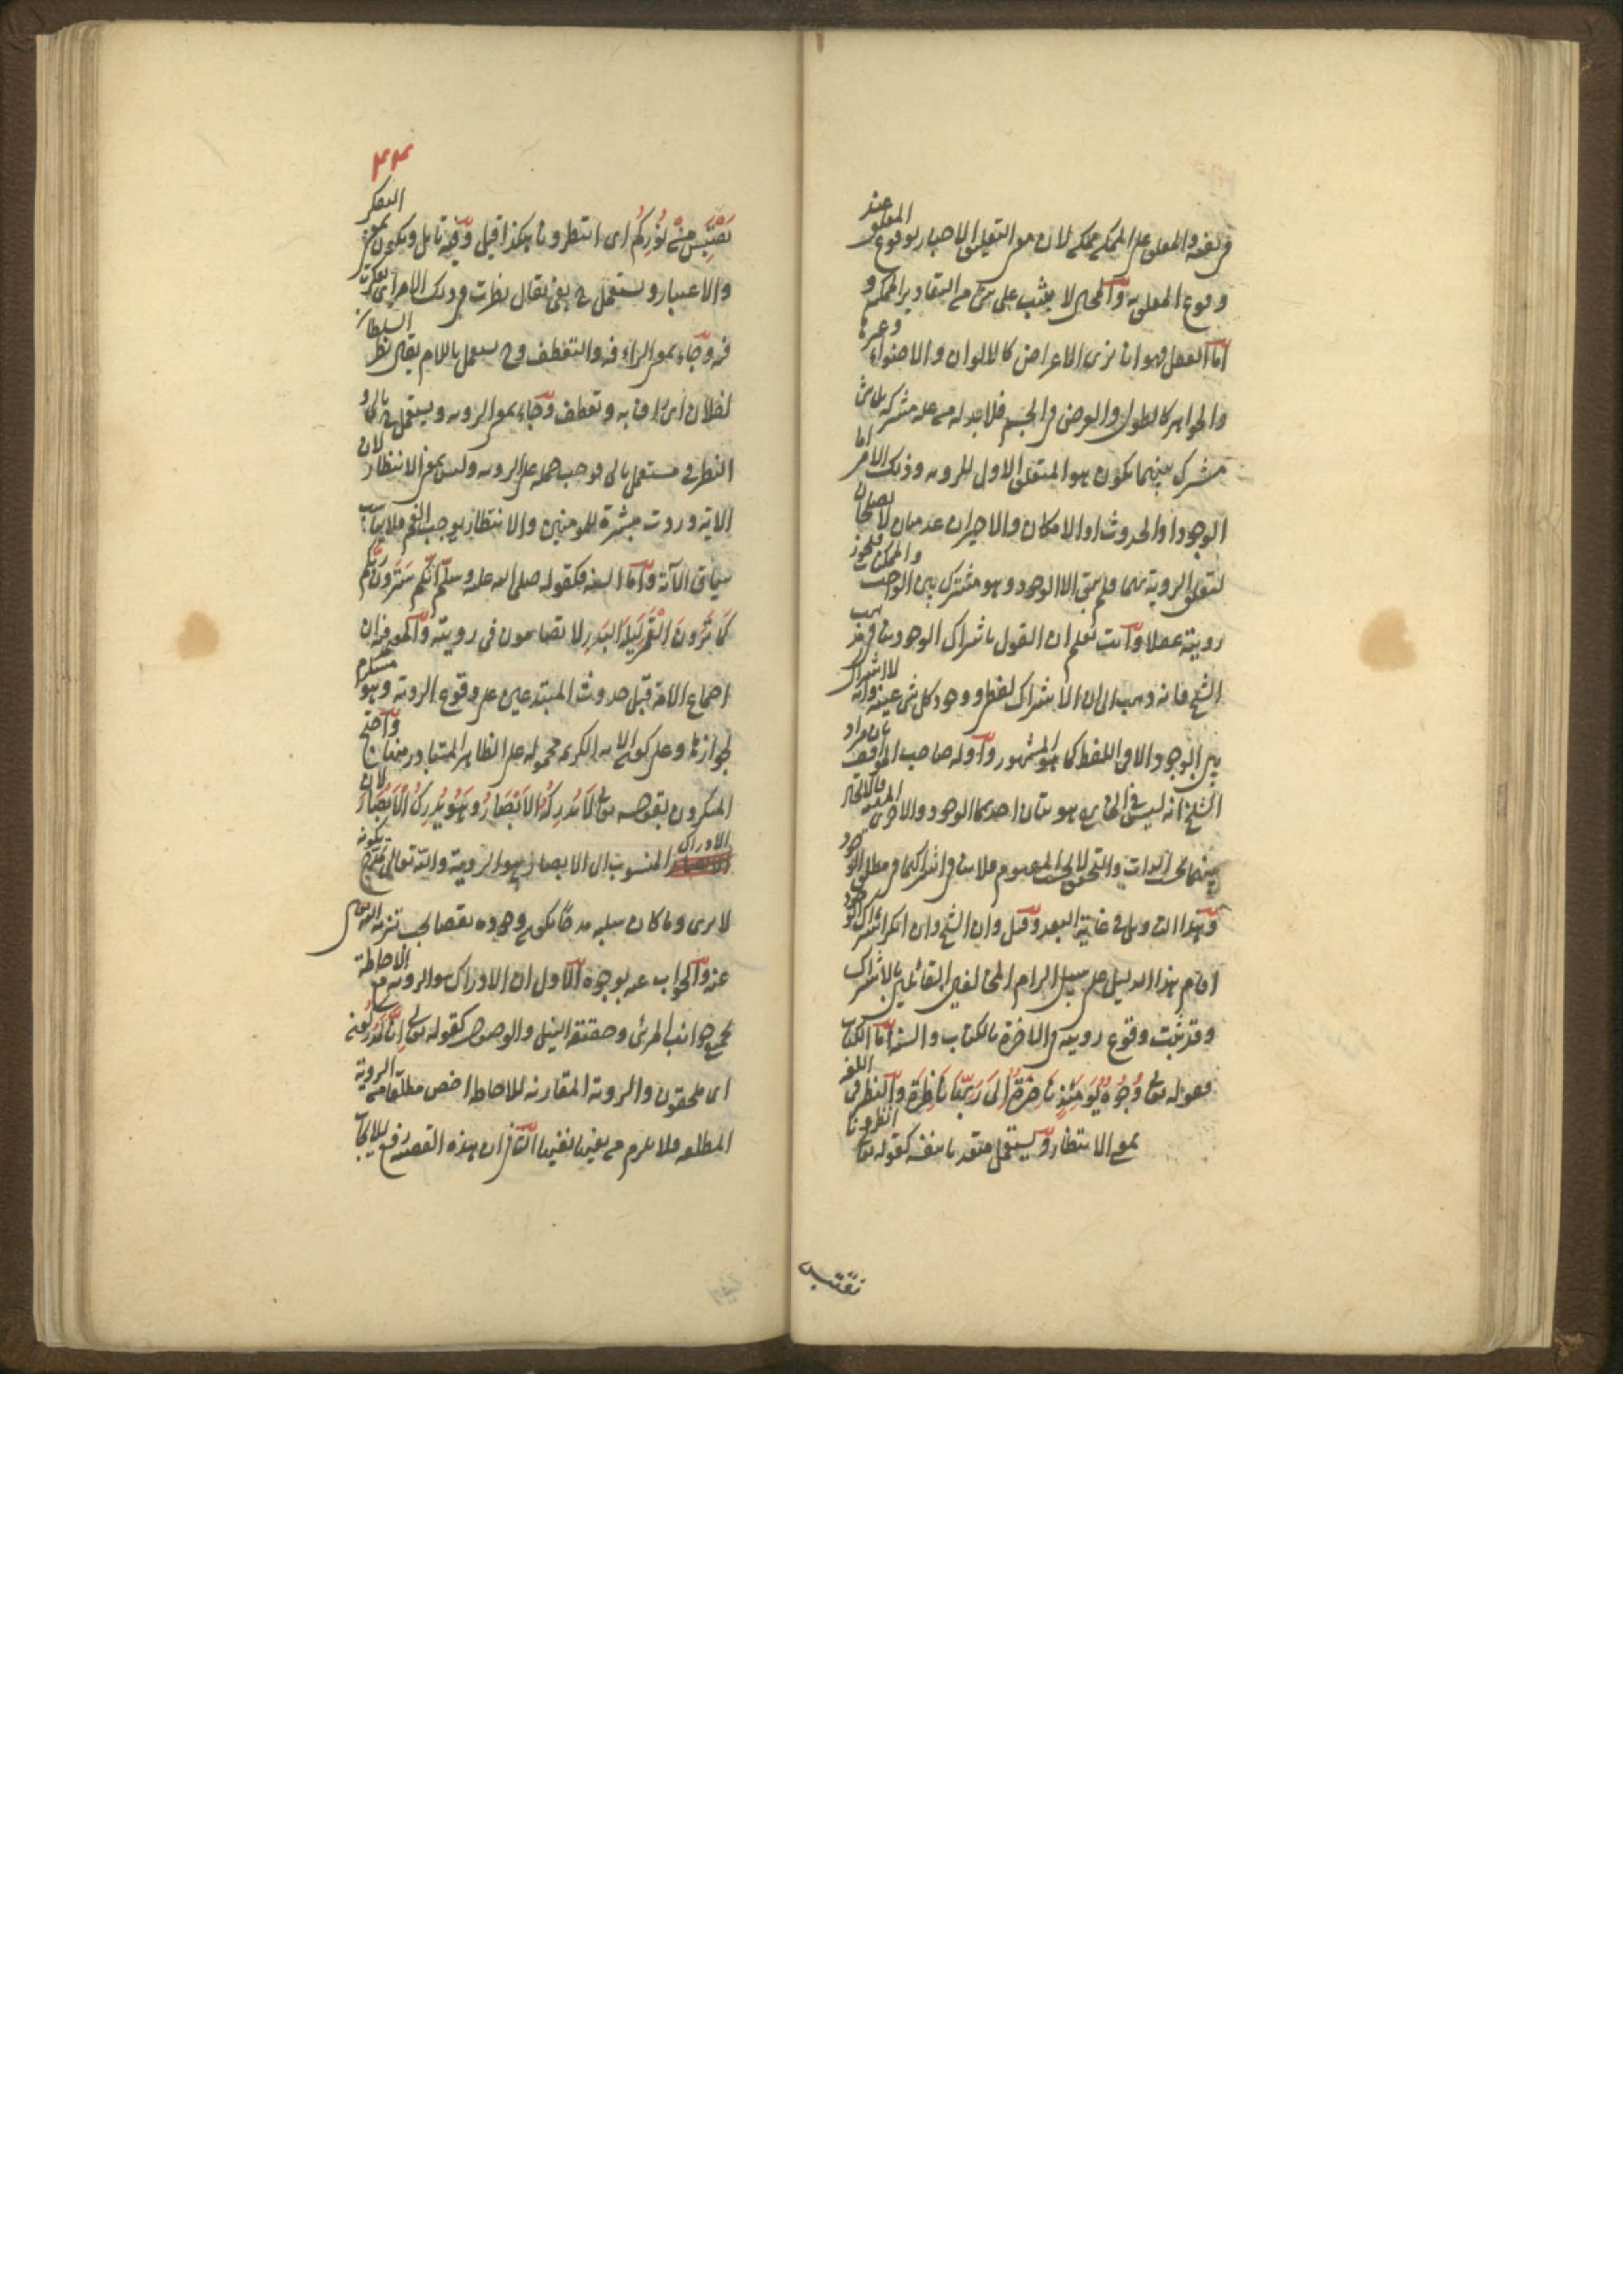 في نفسه والمعلق على الممكن ممكن لان معنى التعليق الاخبار بوقوع المعلق عند
وقوع المعلق به والمحال لا يثبت على شئ من التقادير الممكنة و
اما العقل فهو انا نرى الاعراض كالالوان والاضواء وغيرها
والجواهر كالطول والعرض في الجسم فلا بد له من علة مشتركة
مشترك بينهما يكون هو المتعلق الاول للرويه وذلك الامر اما
الوجود او الحدوث او الامكان والاخيران عدميان لا يصلحان
لتعلق الروية بهما فلم يبق الا الوجود وهو مشترك بين الواجب والممكنات فيجوز
رويته عقلا وانت تعلم ان القول باشتراك الوجود ينافي مذهب
الشيخ فانه ذهب الى ان الاشتراك لفظي ووجود كل شئ عينه وانه لا اشتراك
بين الوجود الا في اللفظ كما هو المشهور واوله صاحب المواقف بان مراد
الشيخ انه ليس في الخارج هويتان احديهما الوجود والاخرى
بينهما بحسب الذات والتحقق لا بحسب المفهوم فلا ينافي اشتراكهما في مطلق الوجود
وهذا التاويل في غاية البعد وقيل وان الشيخ وان انكر اشتراك الوجود
اقام هذا الدليل على سبيل الزام المخالفين القائلين بالاشتراك
وقد ثبت وقوع رويته في الاخرة بالكتاب والسنة اما الكتاب
فقوله تعالى وُجُوهٌ يَوْمَئِذٍ نَاضِرَةٌ إِلَى رَبِّهَا نَاظِرَة والنظر في اللغة
بمعنى الانتظار ويستعمل متعديا بنفسه كقوله تعالى انظرونا
نقتبس
٤٣
نَقْتَبِسْ مِنْ نُورِكُمْ اى انتظرونا هكذا قيل وفيه تامل ويكون بمعنى التفكر
والاعتبار ويستعمل بفي يقال نظرت في ذلك الامر اى تفكرت
فيه وجاء بمعنى الرافة والتعطف وح يستعمل باللام يقال نظر السلطان
لفلان اى راف به وتعطف وجاء بمعنى الرويه ويستعمل بالى و
النظر في مستعمل بالى فوجب حمله على الرويه وليس بمعنى الانتظار لان
الاية وردت مبشرة للمومنين والانتظار يوجب الغم فلا يناسب
سياق الاية واما السنه فكقوله صلى الله عليه وسلم اِنَّكُمْ سَتَرَوْنَ رَبَّكُمْ
كَمَا تَرَوْنَ الْقَمَرَ لَيْلَةَ الْبَدْرِ لا تضامون في رويته واما المعرفة فان
اجماع الامة قبل حدوث المبتدعين على وقوع الروية وهو مستلزم
لجوازها وعلى كون الايه الكريمه محمولة على الظاهر المتبادر منها واحتج
المنكرون بقوله تعالى لَا تُدْرِكُهُ الْأَبْصَارُ وَهُوَ يُدْرِكُ الْأَبْصَارَ لان
الادراك المنسوب الى الابصار هو الروية والله تعالى تمدح بكونه
لا يرى وما كان سلبه مدحا يكون وجوده نقصا يجب تنزيه الله تعالى
عنه والجواب عنه بوجوه الاول ان الادراك هو الرويه مع الاحاطة
بجميع جوانب المرئى وحقيقته النيل والوصول كقوله تعالى إِنَّا لَمُدْرَكُونَ
اى ملحقون والرويه المقارنه للاحاطه اخص مطلقا من الروية
المطلقه فلا يلزم من نفيها نفيها الثاني ان هذه القضيه رفع للايجاب